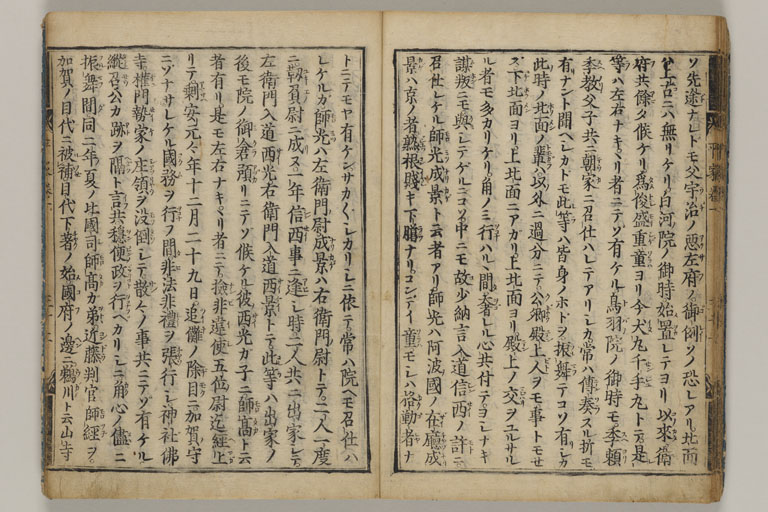 ソ先途ナレトモ父宇治ノ惡左府ノ御例ソノ恐レアリ北面
上古ニハ無リケリ白河院ノ御時始置レテヨリ以來衛
府共餘タ候ケリ爲俊盛重童ヨリ今犬丸千手丸トテ是
等ハ左右ナキキリ者ニテソ有ケル鳥羽院ノ御時モ季頼
季敎父子共ニ朝家ニ召仕ハレテアリシカ常ハ傳奏スル折モ
有ナント聞ヘシカドモ此等ハ皆身ノホドヲ振舞テコソ有シカ
此時ノ北面ノ輩ハ以外ニ過分ニテ公卿殿上人ヲモ事トモセ
ス下北面ヨリ上北面ニアカリ上北面ヨリ殿上ノ交ヲユルサル
ル者モ多カリケリ角ノミ行ハルル間奢レル心共付テヨシナキ
謀叛ニモ與シテケルニコソ中ニモ故少納言入道信西ノ許ニ
召仕ケル師光成景ト云者アリ師光ハ阿波國ノ在廳成
景ハ京ノ者熟根賤キ下臈ナリコンデイ童モシハ恪勤者ナ
トニテモヤ有ケンサカ〱シカリシニ依テ常ハ院ヘモ召仕ハ
レケルカ師光ハ左衛門尉成景ハ右衛門尉トテ二人一度
ニ靱負尉ニ成ヌ一年信西事ニ逢シ時二人共ニ出家シテ
左衛門入道西光右衛門入道西景トテ此等ハ出家ノ
後モ院ノ御倉預リニテソ候ケル彼西光カ子ニ師高ト云
者有リ是モ左右ナキキリ者ニテ撿非違使五位尉迄經上
リテ剰安元々年十二月二十九日追儺ノ除目ニ加賀守
ニソナサレケル國務ヲ行フ間非法非禮ヲ張行シ神社佛
寺權門勢家ノ庄領ヲ没倒シテ散々ノ事共ニテソ有ケル
縦召公カ跡ヲ隔ト言共穩便政ヲ行ベカリシニ角心ノ儘ニ
振舞間同二年ノ夏ノ比國司師高カ弟近藤判官師經ヲ
加賀ノ目代ニ被補目代下著ノ始國府ノ邊ニ鵜川ト云山寺